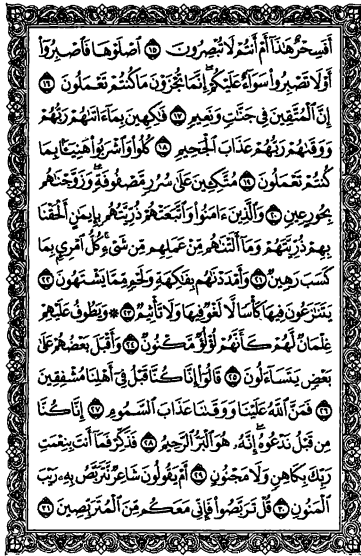 أَفَسِحْرٌ هَٰذَا أَمْ أَنتُمْ لَا تُبْصِرُونَ ١٥ اصْلَوْهَا فَاصْبِرُوا
أَوْ لَا تَصْبِرُوا سَوَاءٌ عَلَيْكُمْ إِنَّمَا تُجْزَوْنَ مَا كُنتُمْ تَعْمَلُونَ ١٦
إِنَّ الْمُتَّقِينَ فِي جَنَّاتٍ وَنَعِيمٍ ١٧ فَاكِهِينَ بِمَا آتَاهُمْ رَبُّهُمْ
وَوَقَاهُمْ رَبُّهُمْ عَذَابَ الْجَحِيمِ ١٨ كُلُوا وَاشْرَبُوا هَنِيئًا بِمَا
كُنتُمْ تَعْمَلُونَ ١٩ مُتَّكِئِينَ عَلَىٰ سُرُرٍ مَّصْفُوفَةٍ وَزَوَّجْنَاهُم
بِحُورٍ عِينٍ ٢٠ وَالَّذِينَ آمَنُوا وَاتَّبَعَتْهُمْ ذُرِّيَّتُهُم بِإِيمَانٍ أَلْحَقْنَا
بِهِمْ ذُرِّيَّتَهُمْ وَمَا أَلَتْنَاهُم مِّنْ عَمَلِهِم مِّن شَيْءٍ كُلُّ امْرِئٍ بِمَا
كَسَبَ رَهِينٌ ٢١ وَأَمْدَدْنَاهُم بِفَاكِهَةٍ وَلَحْمٍ مِّمَّا يَشْتَهُونَ ٢٢
يَتَنَازَعُونَ فِيهَا كَأْسًا لَّا لَغْوٌ فِيهَا وَلَا تَأْثِيمٌ ٢٣ ۞ وَيَطُوفُ عَلَيْهِمْ
غِلْمَانٌ لَّهُمْ كَأَنَّهُمْ لُؤْلُؤٌ مَّكْنُونٌ ٢٤ وَأَقْبَلَ بَعْضُهُمْ عَلَىٰ
بَعْضٍ يَتَسَاءَلُونَ ٢٥ قَالُوا إِنَّا كُنَّا قَبْلُ فِي أَهْلِنَا مُشْفِقِينَ
٢٦ فَمَنَّ اللَّهُ عَلَيْنَا وَوَقَانَا عَذَابَ السَّمُومِ ٢٧ إِنَّا كُنَّا
مِن قَبْلُ نَدْعُوهُ إِنَّهُ هُوَ الْبَرُّ الرَّحِيمُ ٢٨ فَذَكِّرْ فَمَا أَنتَ بِنِعْمَتِ
رَبِّكَ بِكَاهِنٍ وَلَا مَجْنُونٍ ٢٩ أَمْ يَقُولُونَ شَاعِرٌ نَّتَرَبَّصُ بِهِ رَيْبَ
الْمَنُونِ ٣٠ قُلْ تَرَبَّصُوا فَإِنِّي مَعَكُم مِّنَ الْمُتَرَبِّصِينَ ٣١